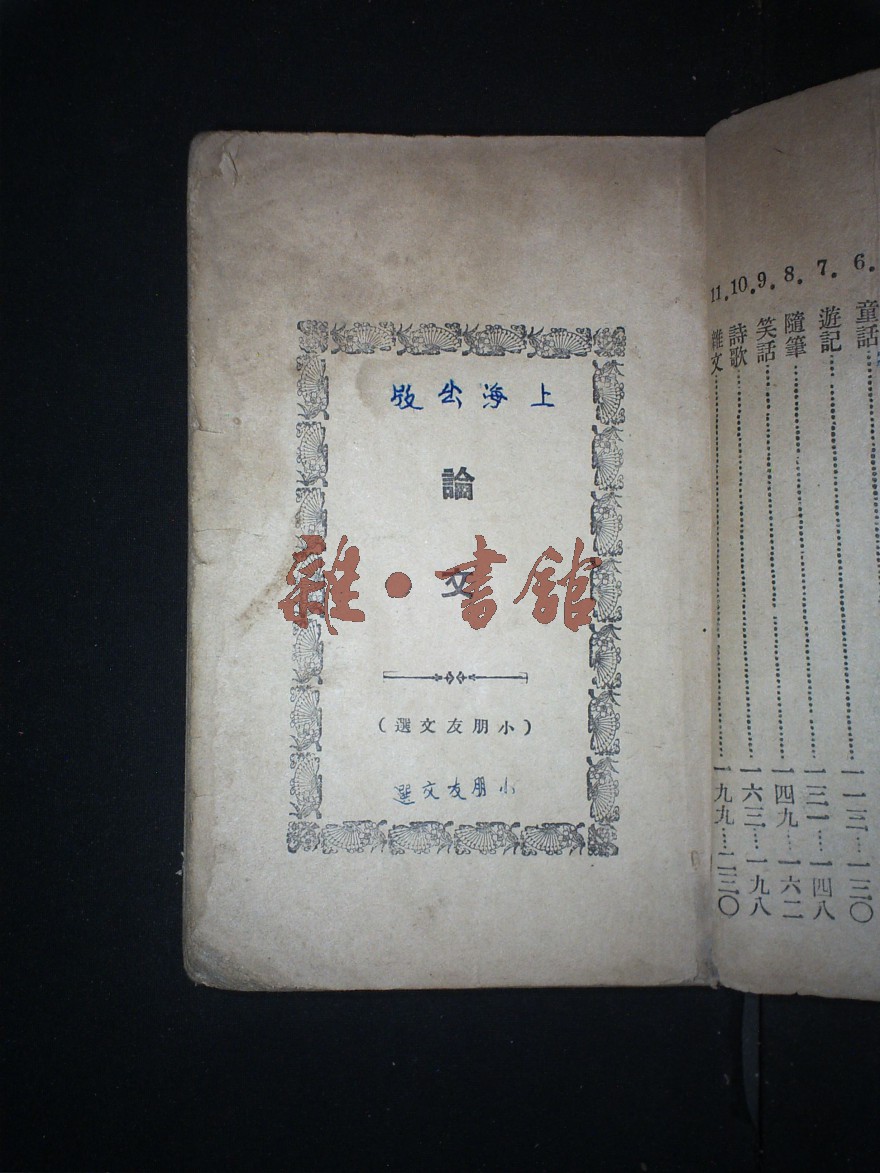 6. 童話
7. 遊記……一一三……一三〇
8. 隨筆……一三一……一四八
9. 笑話……一四九……一六二
10. 詩歌……一六三……一九八
11. 雜文……一九九……二三〇
上海出版
論文
(小朋友文選)
小朋友文選
雜·書館